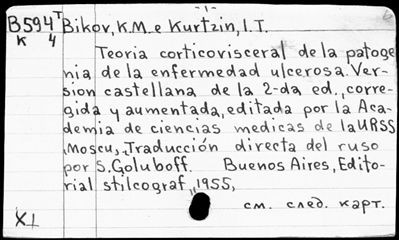 -1-
B594т Bikov, K.M. e Kurtzin, I.T.
K 4
Teoria corticovisceral de la patoge
nia de la enfermedad ulcerosa. Ver-
sion castellana de la 2-da ed., corre-
gida y aumentada, editada por la Aca-
demia de ciencias medicas de la URSS
Moscu, Traducción directa del ruso
por S. Goluboff. Buenos Aires, Edito-
rial stilcograf, 1955,
см. след. карт.
XI